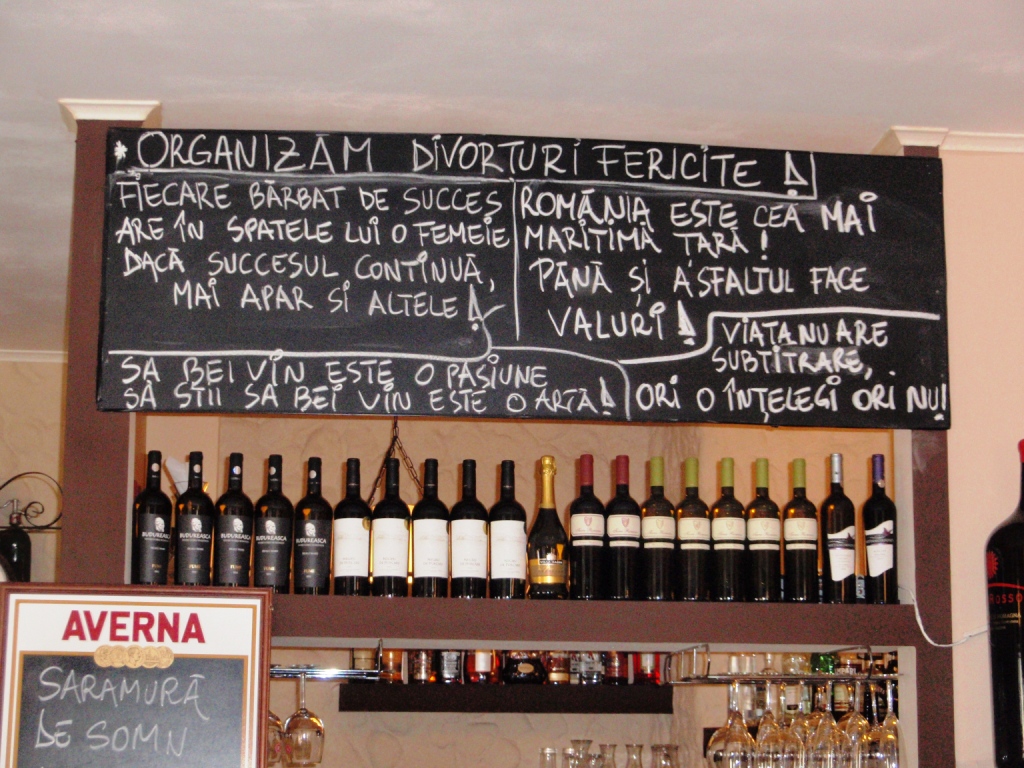 * ORGANIZĂM DIVORȚURI FERICITE!
FIECARE BĂRBAT DE SUCCES
ARE ÎN SPATELE LUI O FEMEIE
DACĂ SUCCESUL CONTINUĂ,
MAI APAR SI ALTELE!
ROMÂNIA ESTE CEA MAI
MARITIMĂ ȚARĂ!
PĂNĂ ȘI ASFALTUL FACE
VALURI!
SA BEI VIN ESTE O PASIUNE
SĂ STII SA BEI VIN ESTE O ARTĂ!
VIAȚA NU ARE
SUBTITRARE,
ORI O ÎNȚELEGI ORI NU!
BUDUREASCA
BUDUREASCA
BUDUREASCA
BUDUREASCA
BUDUREASCA
AVERNA
SARAMURĂ
DE SOMN
ROSSO